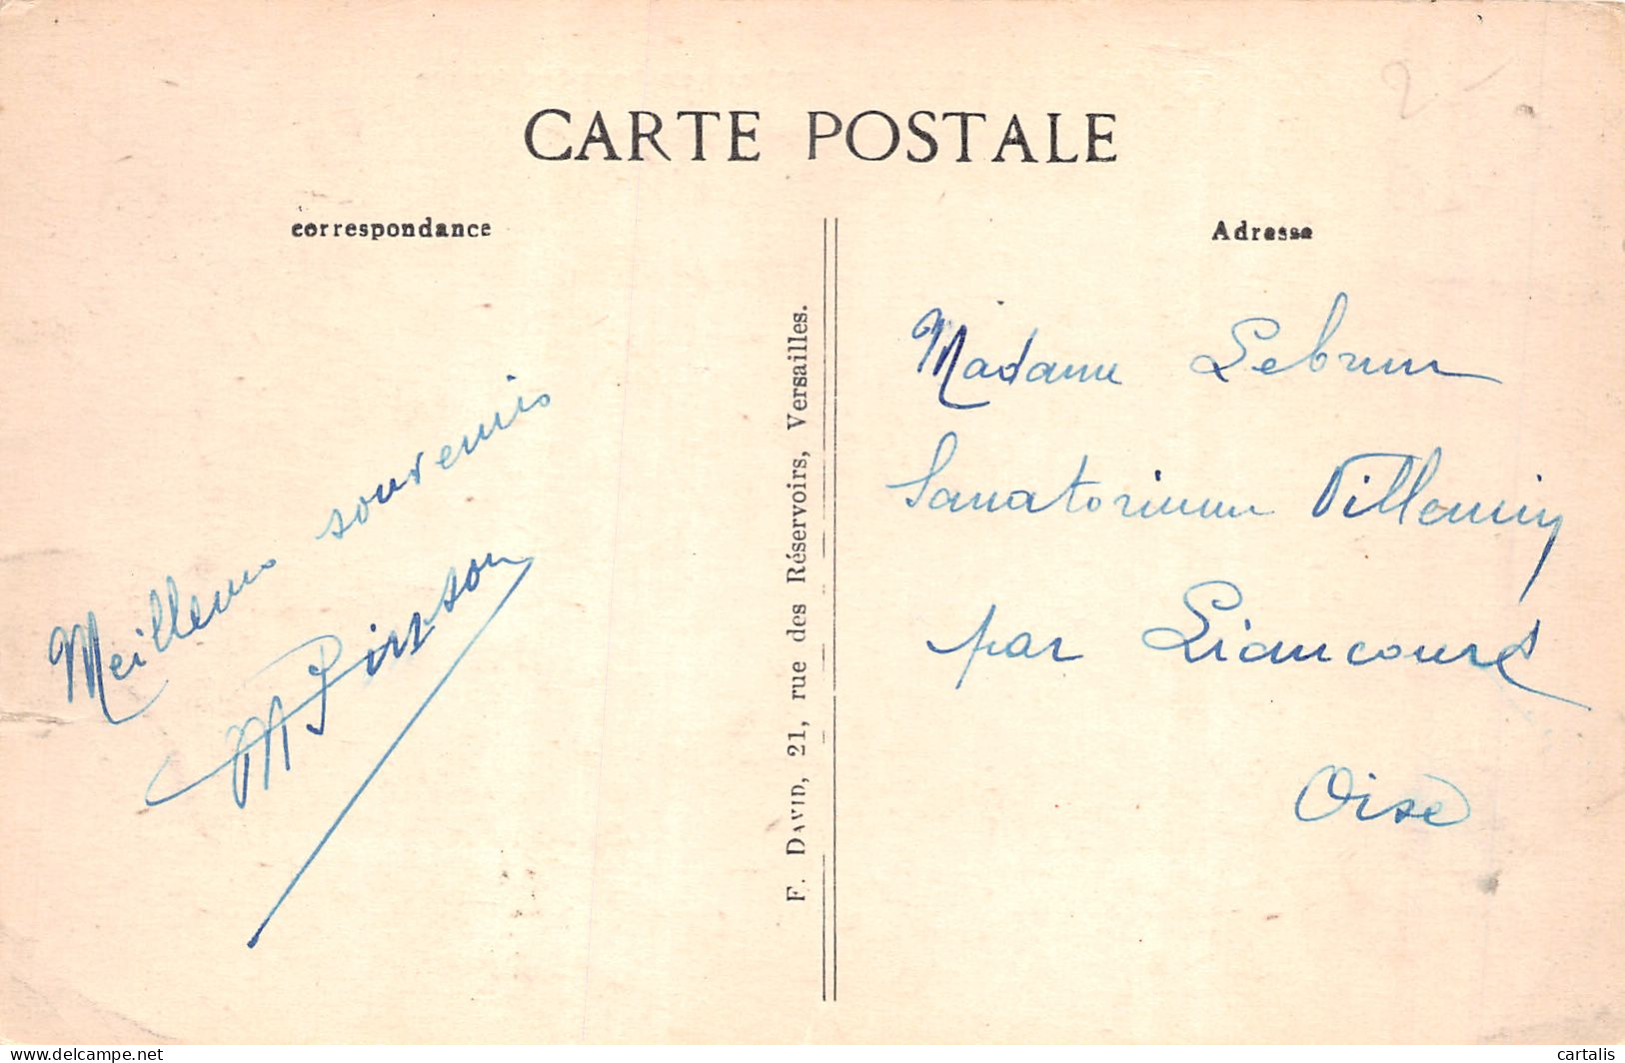 2-
CARTE POSTALE
correspondance
Adresse
Meilleurs souvenirs
M Pierson
F. DAVID, 21, rue des Réservoirs, Versailles.
Madame Lebrun
Sanatorium Villemin
par Liancourt
Oise
delcampe.net
cartalis